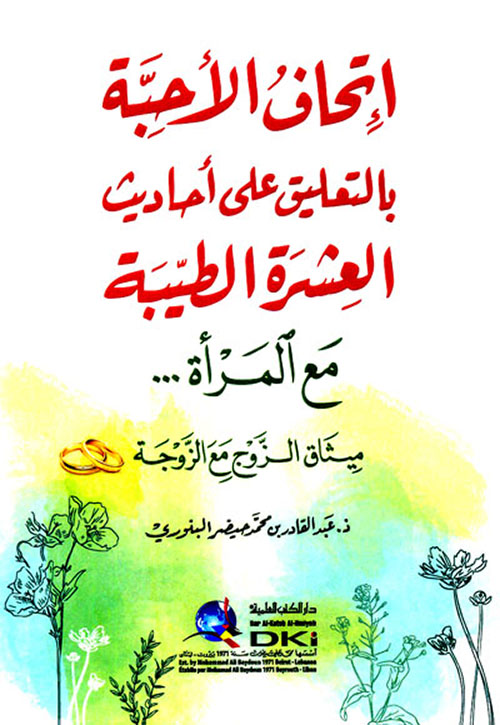 إتحافُ الأحِبَّة
بالتعليق على أحاديث
العِشرَة الطيّبَة
مَع ٱلمَرْأة ...
مِيثاق الزَّوْج مَع الزَّوْجَة
ذ. عبد القادر بن محمَّد حيضر البنوري
دار الكتب العلمية
Dar Al-Kotob Al-Ilmiyah
DKi
أسسها محمد علي بيضون سنة 1971 بيروت - لبنان
Est. by Mohammad Ali Baydoun 1971 Beirut - Lebanon
Établie par Mohamad Ali Baydoun 1971 Beyrouth - Liban